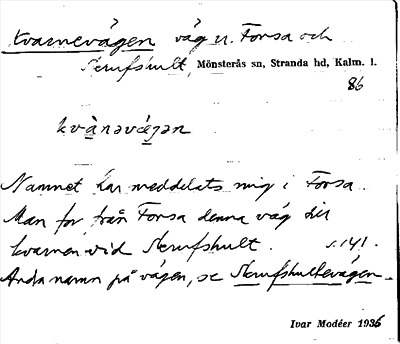 Kvarnevägen väg n. Forsa och
Skrufshult, Mönsterås sn, Stranda hd, Kalm. l.
86
kvànəvǽgən
Namnet har meddelats mig i Forsa.
Man for från Forsa denna väg till
kvarnen vid Skrufshult. s. 141.
Andra namn på vägen, se Skrufshultevägen.
Ivar Modéer 1936